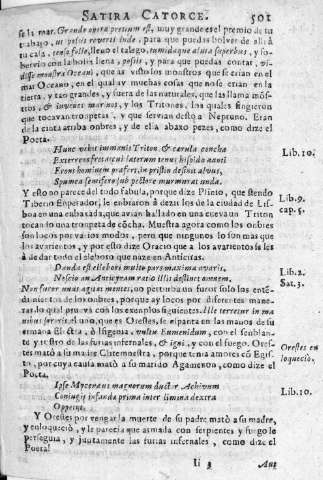 SATIRA CATORCE. 501
se la mar. Grande opera pretium est, muy grande es el premio de tu
trabajo, ut possis reverti inde, para que puedas bolver de allà a
tu casa, tensa folle, lleno el talego, tumidaque aluta superbus, y so-
bervio con la bolsa llena, possis, y para que puedas contar, vi-
disse monstra Oceani, que as visto los monstros que se crian en el
mar Oceano, en el qual ay muchas cosas que no se crian en la
tierra, y tan grandes, y fuera de las naturales, que las llama mós-
tros, & iuvenes marinos, y los Tritones, los quales fingieron
que tocavan trompetas, y que servian desto a Neptuno. Eran
de la cinta arriba onbres, y de ella abaxo pezes, como dize el
Poeta.
Hunc vehit immanis Triton & cærula concha Lib. 10.
Exterrens freta, cui laterum tenus hispida nanti
Frons hominem præfert, in pristin desinit alvus,
Spumea semifero sub pectore murmurat unda.
Y esto no parece del todo fabula, porque dize Plinio, que siendo Lib. 9.
Tiberio Enperador, le enbiaron à dezir los de la ciudad de Lis- cap. 5.
boa en una enbaxada, que avian hallado en una cueva un Triton
tocando una trompeta de cócha. Muestra agora como los onbres
son locos por varios modos, pero que ningunos lo son mas que
los avarientos, y por esto dize Oracio que a los avarientos se les
à de dar todo el eleboro que naze en Anticiras.
Danda est ellebori multo pars maxima avaris. Lib. 2.
Nescio an Anticyram ratio illis destinet omnem. Sat. 3.
Non furor unus agitat mentes, no perturba un furor solo los enté-
dimientos de los onbres, porque ay locos por diferentes mane-
ras lo qual prueva con los exenplos siguientes. Ille terretur in ma
nibus sororis. el uno, que es Orestes, se espanta en las manos de su
ermana Electra, ò Ifigenia, vultu Eumenidum, con el senblan-
te y rostro de las furias infernales, & igni, y con el fuego. Ores- Orestes en
tes mató a su madre Clitemnestra, porque tenia amores có Egis- loqueciò.
to, por cuya causa mató a su marido Agamenon, como dize el
Poeta.
Ipse Mycenæus magnorum ductor Achivum Lib. 10.
Coniugis infanda prima inter limina dextra
Oppetiit.
Y Orestes por vengar la muerte de su padre mató a su madre,
y enloqueciò, y le parecia que armada con serpientes y fuego le
perseguia, y juntamente las furias infernales, como dize el
Poeta.
Ii 3 Aut